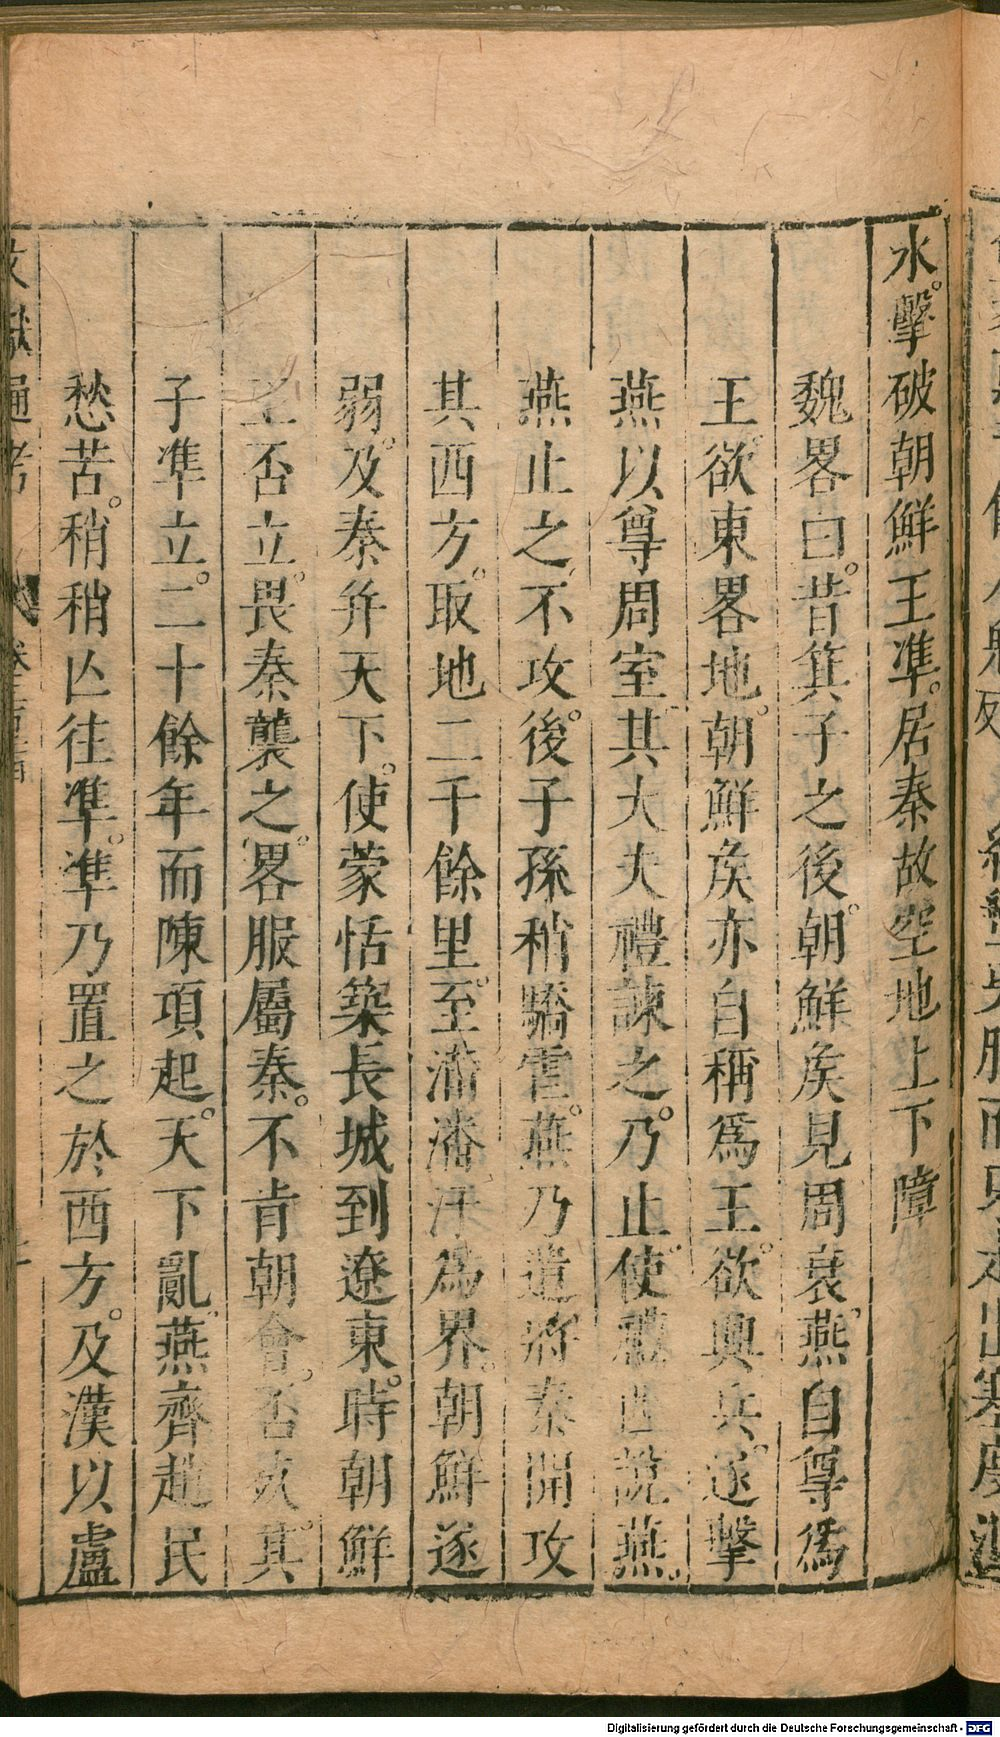 水擊破朝鮮王準居秦故空地上下障
魏畧曰昔箕子之後朝鮮矦見周衰燕自尊爲
王欲東畧地朝鮮矦亦自稱爲王欲興兵遂擊
燕以尊周室其大夫禮諫之乃止使禮西說燕
燕止之不攻後子孫稍驕虐燕乃遣將秦開攻
其西方取地二千餘里至滿潘汗爲界朝鮮遂
弱及秦并天下使蒙恬築長城到遼東時朝鮮
王否立畏秦襲之畧服屬秦不肯朝會否死其
子準立二十餘年而陳項起天下亂燕齊趙民
愁苦稍稍亾往準準乃置之於西方及漢以盧
文獻通考
Digitalisierung gefördert durch die Deutsche Forschungsgemeinschaft - DFG